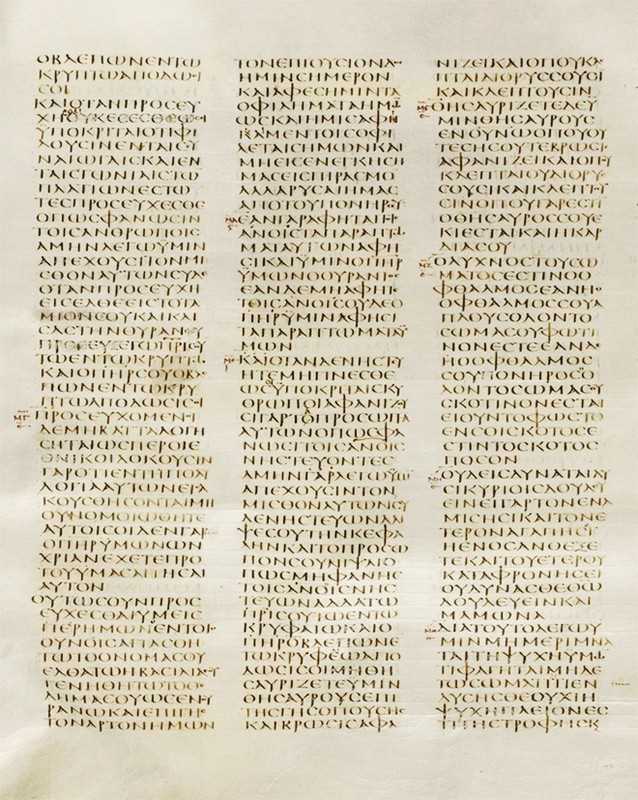 ΟΒΛΕΠΩΝΕΝΤΩ
ΚΡΥΠΤΩΑΠΟΔΩϹΙ
ϹΟΙ
ΚΑΙΟΤΑΝΠΡΟϹΕΥ
ΥΠΟΚΡΙΤΑΙΟΤΙΦΙ
ΛΟΥϹΙΝΕΝΤΑΙϹΥ
ΝΑΓΩΓΑΙϹΚΑΙΕΝ
ΤΑΙϹΓΩΝΙΑΙϹΤΩ
ΠΛΑΤΙΩΝΕϹΤΩ
ΤΕϹΠΡΟϹΕΥΧΕϹΘΕ
ΟΠΩϹΦΑΝΩϹΙΝ
ΤΟΙϹΑΝΘΡΩΠΟΙϹ
ΑΜΗΝΛΕΓΩΥΜΙΝ
ΑΠΕΧΟΥϹΙΤΟΝΜΙ
ϹΘΟΝΑΥΤΩΝϹΥΔΕ
ΟΤΑΝΠΡΟϹΕΥΧΗ
ΕΙϹΕΛΘΕΕΙϹΤΟΤΑ
ΜΙΟΝϹΟΥΚΑΙΚΛΙ
ϹΑϹΤΗΝΘΥΡΑΝϹΟΥ
ΤΩΕΝΤΩΚΡΥΠΤΩ
ΚΑΙΟΠΗΡϹΟΥΟΒΛΕ
ΠΩΝΕΝΤΩΚΡΥ
ΠΤΩΑΠΟΔΩϹΙϹΟΙ
ΜΓ ΠΡΟϹΕΥΧΟΜΕΝΟΙ
ΔΕΜΗΒΑΤΤΑΛΟΓΗ
ϹΗΤΑΙΩϹΠΕΡΟΙΕ
ΘΝΙΚΟΙΔΟΚΟΥϹΙΝ
ΓΑΡΟΤΙΕΝΤΗΠΟΛΥ
ΛΟΓΙΑΑΥΤΩΝΕΙϹΑ
ΚΟΥϹΘΗϹΟΝΤΑΙΜΗ
ΟΥΝΟΜΟΙΩΘΗΤΕ
ΑΥΤΟΙϹΟΙΔΕΝΓΑΡ
ΟΠΗΡΥΜΩΝΩΝ
ΧΡΙΑΝΕΧΕΤΕΠΡΟ
ΤΟΥΥΜΑϹΑΙΤΗϹΑΙ
ΑΥΤΟΝ
ΟΥΤΩϹΟΥΝΠΡΟϹ
ΕΥΧΕϹΘΑΙΥΜΕΙϹ
ΠΕΡΗΜΩΝΕΝΤΟΙϹ
ΟΥΝΟΙϹΑΓΙΑϹΘΗ
ΤΩΤΟΟΝΟΜΑϹΟΥ
ΕΛΘΑΤΩΗΒΑϹΙΛΙΑϹΟΥ
ΓΕΝΗΘΗΤΩΤΟΘΕ
ΛΗΜΑϹΟΥΩϹΕΝΟΥ
ΡΑΝΩΚΑΙΕΠΙΓΗϹ
ΤΟΝΑΡΤΟΝΗΜΩΝ
ΤΟΝΕΠΙΟΥϹΙΟΝΔΟϹ
ΗΜΙΝϹΗΜΕΡΟΝ
ΚΑΙΑΦΕϹΗΜΙΝΤΑ
ΟΦΙΛΗΜΑΤΑΗΜΩ
ΩϹΚΑΙΗΜΙϹΑΦΗ
ΚΑΜΕΝΤΟΙϹΟΦΙ
ΛΕΤΑΙϹΗΜΩΝΚΑΙ
ΜΗΕΙϹΕΝΕΓΚΗϹΗ
ΜΑϹΕΙϹΠΙΡΑϹΜΟ
ΑΛΛΑΡΥϹΑΙΗΜΑϹ
ΑΠΟΤΟΥΠΟΝΗΡΟΥ
ΕΑΝΓΑΡΑΦΗΤΑΙΤΟΙϹ
ΑΝΟΙϹΤΑΠΑΡΑΠΤΩ
ΜΑΤΑΑΥΤΩΝΑΦΗ
ϹΙΚΑΙΥΜΙΝΟΠΗΡ
ΥΜΩΝΟΟΥΡΑΝΙΟϹ
ΕΑΝΔΕΜΗΑΦΗΤΕ
ΤΟΙϹΑΝΟΙϹΟΥΔΕΟ
ΠΗΡΥΜΙΝΑΦΗϹΙ
ΤΑΠΑΡΑΠΤΩΜΑΤΑΥ
ΜΩΝ
ΚΑΙΟΤΑΝΔΕΝΗϹΤΕΥ
ΗΤΕΜΗΓΙΝΕϹΘΕ
ΩϹΟΙΥΠΟΚΡΙΤΑΙϹΚΥ
ΘΡΩΠΟΙΑΦΑΝΙΖΟΥ
ϹΙΓΑΡΤΟΠΡΟϹΩΠΟ
ΑΥΤΩΝΟΠΩϹΦΑ
ΝΩϹΙΤΟΙϹΑΝΟΙϹ
ΝΗϹΤΕΥΟΝΤΕϹ
ΑΜΗΝΓΑΡΛΕΓΩΥΜΙ
ΑΠΕΧΟΥϹΙΝΤΟΝ
ΜΙϹΘΟΝΑΥΤΩΝϹΥ
ΔΕΝΗϹΤΕΥΩΝΑΛΙ
ΨΕϹΟΥΤΗΝΚΕΦΑ
ΛΗΝΚΑΙΤΟΠΡΟϹΩ
ΠΟΝϹΟΥΝΙΨΑΙΟ
ΠΩϹΜΗΦΑΝΗϹ
ΤΟΙϹΑΝΟΙϹΝΗϹ
ΤΕΥΩΝΑΛΛΑΤΩ
ΠΡΙϹΟΥΤΩΕΝΤΩ
ΚΡΥΦΑΙΩΚΑΙΟ
ΠΗΡϹΟΥΟΒΛΕΠΩΝΕ
ΤΩΚΡΥΦΑΙΩΑΠΟ
ΔΩϹΙϹΟΙΜΗΘΗ
ϹΑΥΡΙΖΕΤΕΥΜΙΝ
ΘΗϹΑΥΡΟΥϹΕΠΙ
ΤΗϹΓΗϹΟΠΟΥϹΗϹ
ΚΑΙΒΡΩϹΙϹΑΦΑ
ΝΙΖΕΙΚΑΙΟΠΟΥΚΛΕ
ΠΤΑΙΔΙΟΡΥϹϹΟΥϹΙ
ΚΑΙΚΛΕΠΤΟΥϹΙΝ
ΘΗϹΑΥΡΙΖΕΤΕΔΕΥ
ΜΙΝΘΗϹΑΥΡΟΥϹ
ΕΝΟΥΝΩΟΠΟΥΟΥ
ΤΕϹΗϹΟΥΤΕΒΡΩϹΙϹ
ΑΦΑΝΙΖΕΙΚΑΙΟΠΟΥ
ΚΛΕΠΤΑΙΟΥΔΙΟΡΥϹ
ϹΟΥϹΙΚΑΙΚΛΕΠΤΟΥ
ϹΙΝΟΠΟΥΓΑΡΕϹΤΙ
ΟΘΗϹΑΥΡΟϹϹΟΥΕ
ΚΙΕϹΤΑΙΚΑΙΗΚΑΡ
ΔΙΑϹΟΥ
ΟΛΥΧΝΟϹΤΟΥϹΩ
ΜΑΤΟϹΕϹΤΙΝΟΟ
ΦΘΑΛΜΟϹΕΑΝΗΟ
ΟΦΘΑΛΜΟϹϹΟΥΑ
ΠΛΟΥϹΟΛΟΝΤΟ
ΩΜΑϹΟΥΦΩΤΙ
ΝΟΝΕϹΤΕΕΑΝΔΕ
ΗΟΟΦΘΑΛΜΟϹ
ϹΟΥΠΟΝΗΡΟϹΟ
ΛΟΝΤΟϹΩΜΑϹΟΥ
ϹΚΟΤΙΝΟΝΕϹΤΑΙ
ΕΙΟΥΝΤΟΦΩϹΤΟ
ΕΝϹΟΙϹΚΟΤΟϹΕ
ϹΤΙΝΤΟϹΚΟΤΟϹ
ΠΟϹΟΝ
ΟΥΔΕΙϹΔΥΝΑΤΑΙΔΥ
ϹΙΚΥΡΙΟΙϹΔΟΥΛΕΥ
ΕΙΝΕΙΓΑΡΤΟΝΕΝΑ
ΜΙϹΗϹΙΚΑΙΤΟΝΕ
ΤΕΡΟΝΑΓΑΠΗϹΙ
ΗΕΝΟϹΑΝΘΕΞΕ
ΤΕΚΑΙΤΟΥΕΤΕΡΟΥ
ΚΑΤΑΦΡΟΝΗϹΕΙ
ΟΥΔΥΝΑϹΘΕΘΩ
ΔΟΥΛΕΥΕΙΝΚΑΙ
ΜΑΜΩΝΑ
ΔΙΑΤΟΥΤΟΛΕΓΩΥ
ΜΙΝΜΗΜΕΡΙΜΝΑ
ΤΑΙΤΗΨΥΧΗΥΜΩ
ΤΙΦΑΓΗΤΑΙΜΗΔΕ
ΤΩϹΩΜΑΤΙΤΙΕΝ
ΔΥϹΗϹΘΕΟΥΧΙΗ
ΨΥΧΗΠΛΕΙΟΝΕϹ
ΤΙΤΗϹΤΡΟΦΗϹΚ